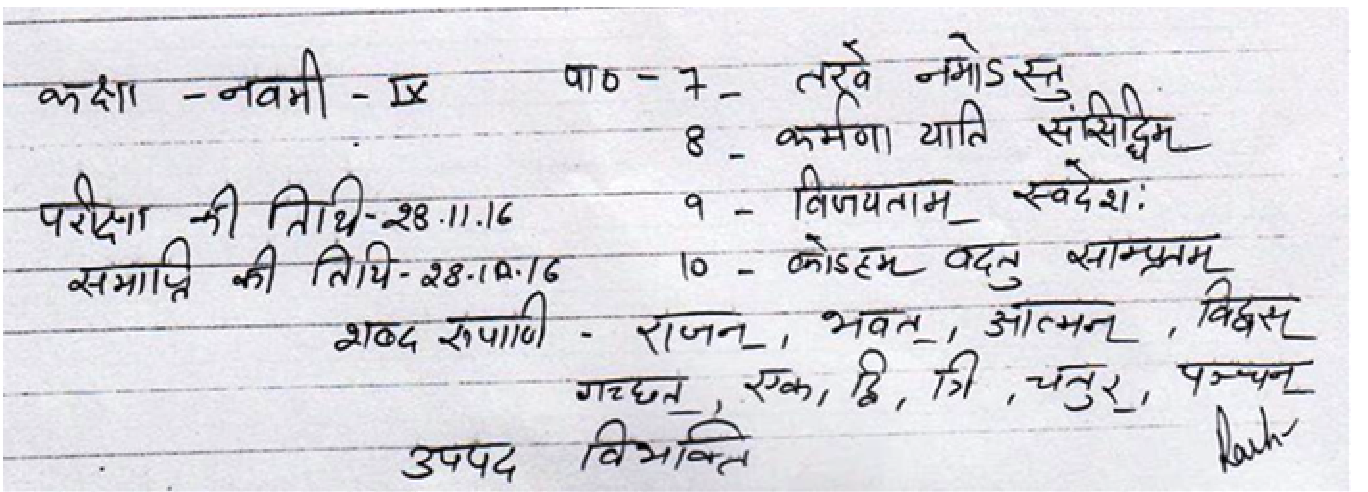 कक्षा - नवमी - IX पाठ - 7 - तरवे नमोऽस्तु
8 - कर्मणा याति संसिद्धिम्
परीक्षा की तिथि - 28.11.16 9 - विजयताम् स्वदेशः
समाप्ति की तिथि - 28.10.16 10 - कोऽहम् वदतु साम्प्रतम्
शब्द रूपाणि - राजन्, भवत्, आत्मन्, विद्वस्
गच्छत्, एक, द्वि, त्रि, चतुर्, पञ्चन्
उपपद विभक्ति